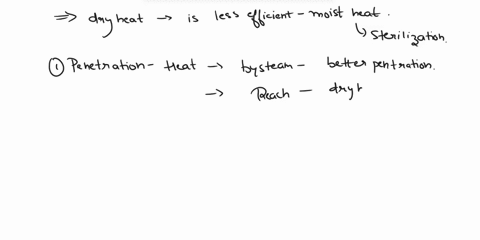 ⇒ dry heat → is less efficient - moist heat.
↳ Sterilization.
① Penetration - Heat → by steam - better pentration.
→ Reach - dry h